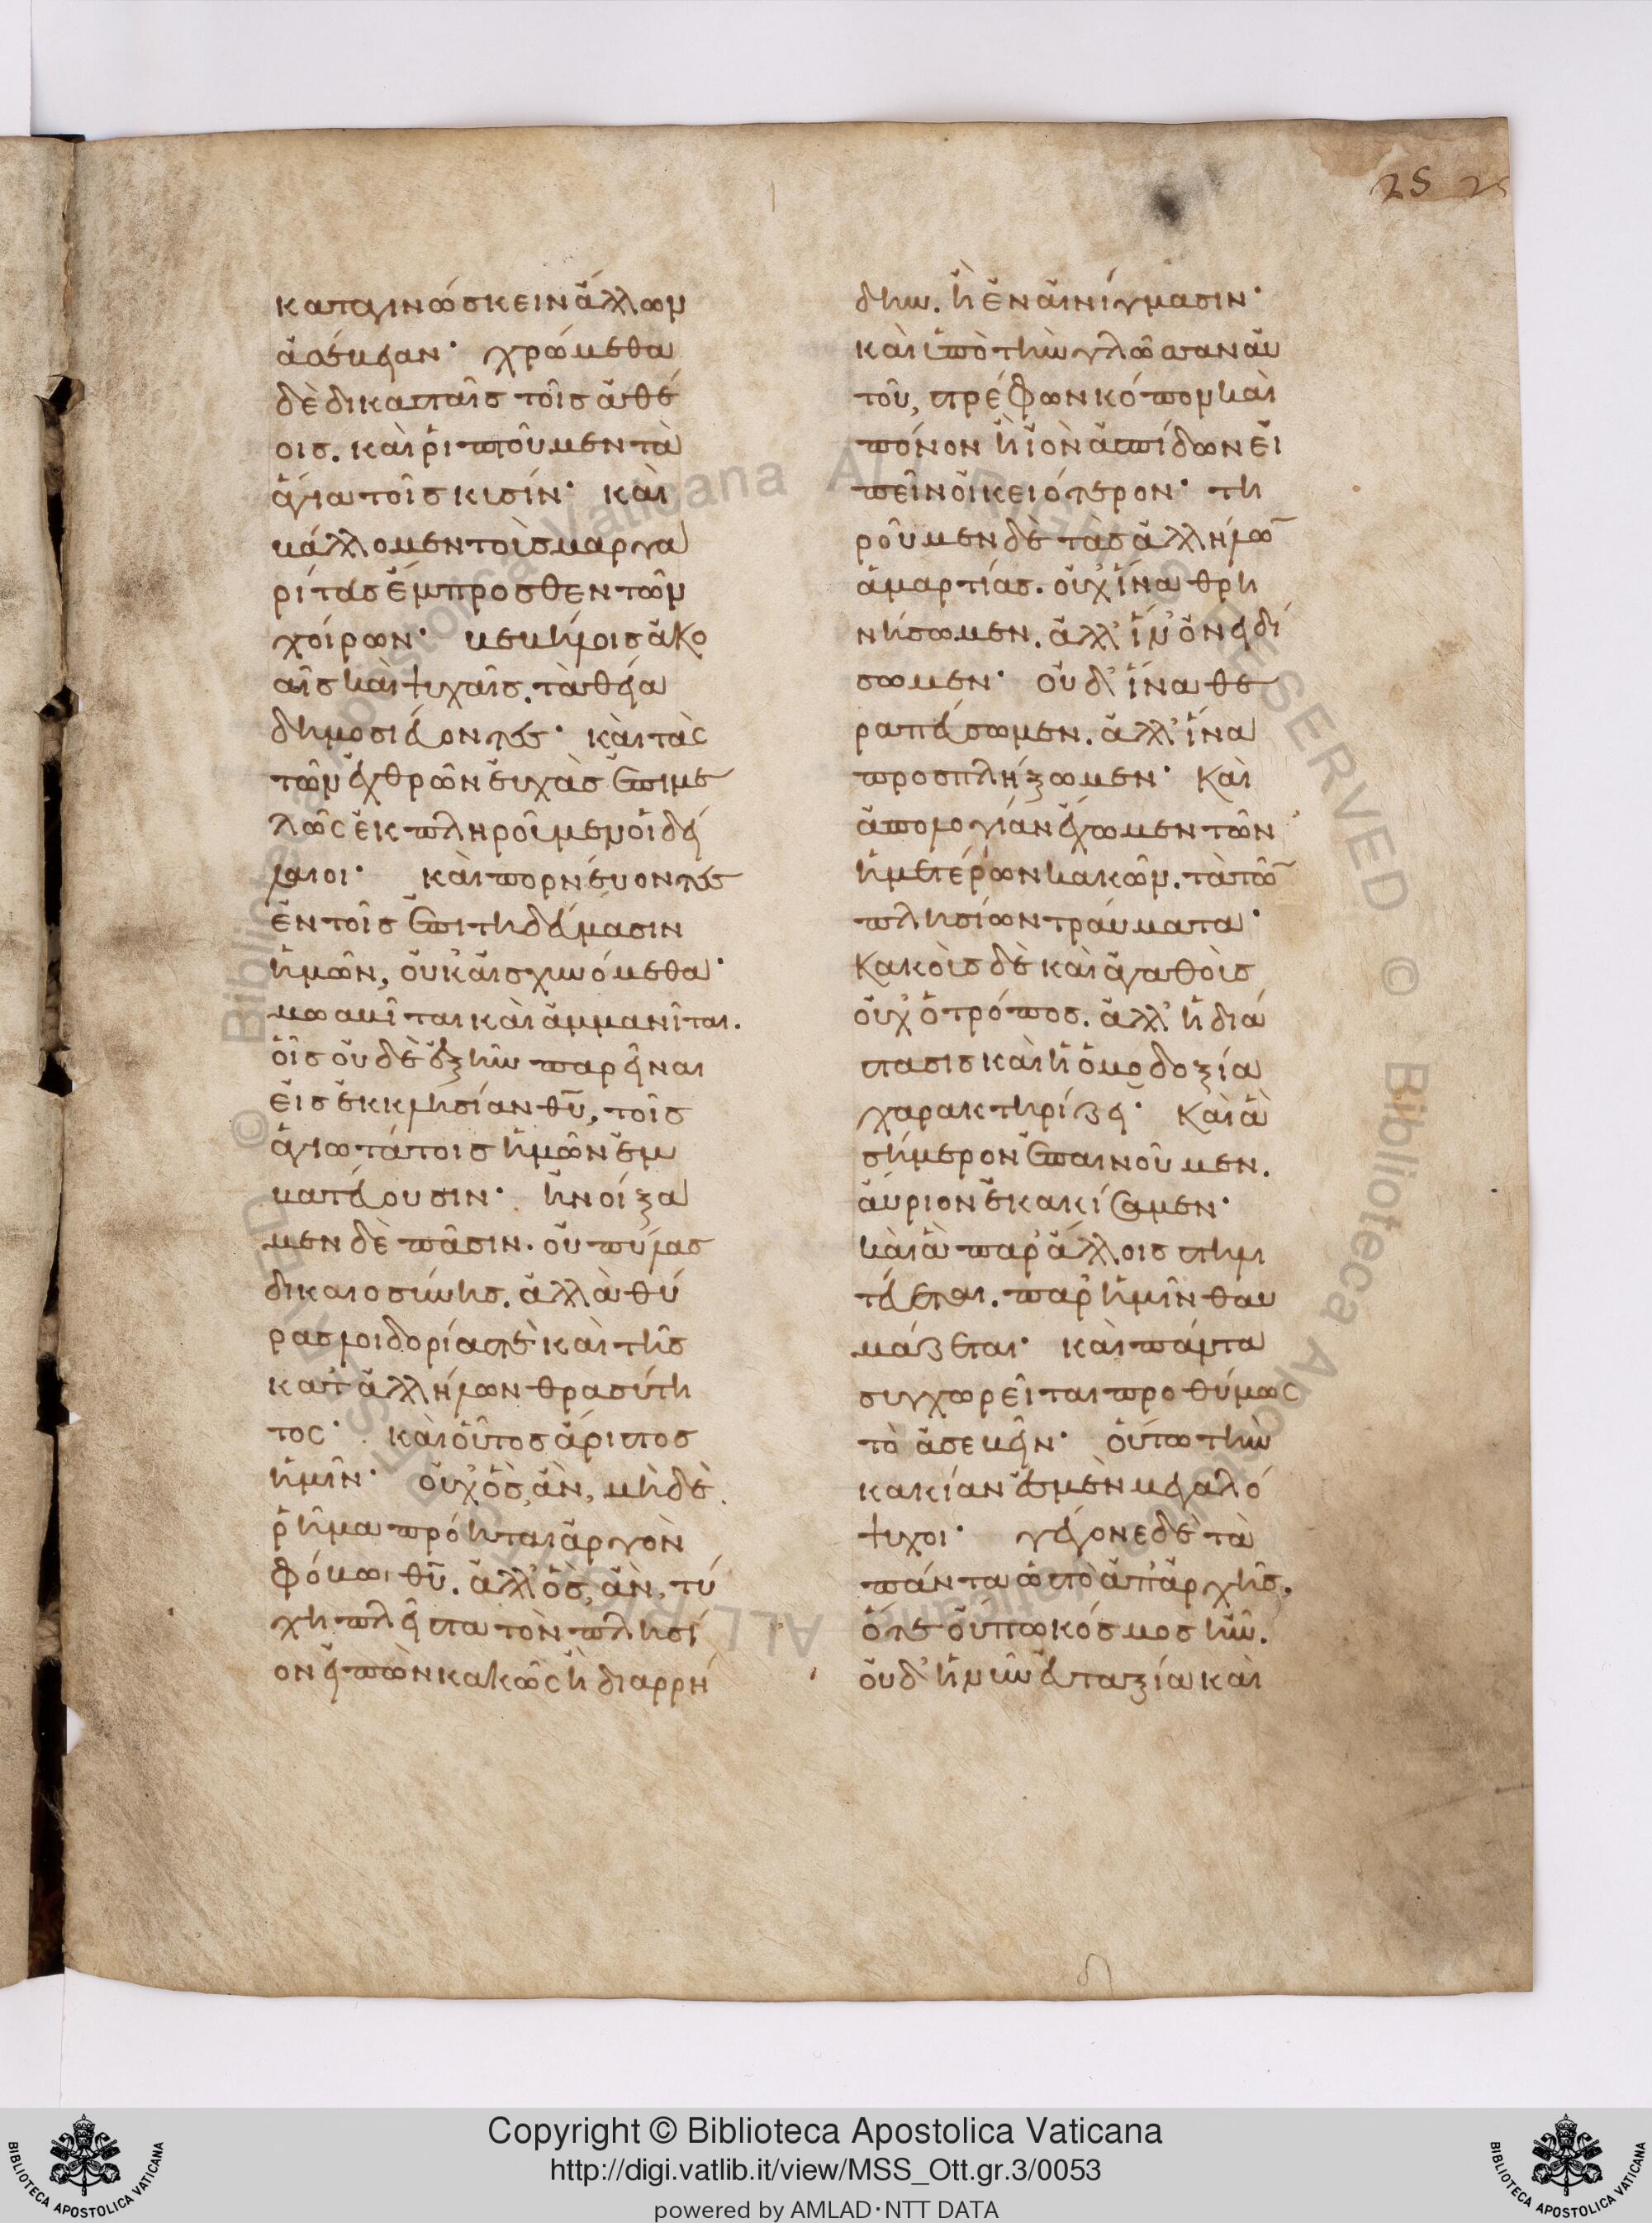 25 25
καταγινώσκειν ἄλλων
ἀσέβειαν· χρώμεθα
δὲ δικασταῖς τοῖς ἀθέ
οις. καὶ ῥιπτοῦμεν τὰ
ἅγια τοῖς κυσίν· καὶ
βάλλομεν τοὺς μαργα
ρίτας ἔμπροσθεν τῶν
χοίρων· βεβήλοις ἀκο
αῖς καὶ ψυχαῖς. τὰ θεῖα
δημοσιεύοντες· καὶ τὰς
τῶν ἐχθρῶν εὐχὰς ἐπιμε
λῶς ἐκπληροῦμεν οἱ δεί
λαιοι· καὶ πορνεύοντες
ἐν τοῖς ἐπιτηδεύμασιν
ἡμῶν, οὐκ αἰσχυνόμεθα·
μωαβῖται καὶ ἀμμανῖται.
οἷς οὐδὲ ἐξῆν παρεῖναι
εἰς ἐκκλησίαν θυ, τοῖς
ἁγιωτάτοις ἡμῶν ἐμ
βατεύουσιν· ἠνοίξα
μεν δὲ πᾶσιν. οὐ πύλας
δικαιοσύνης. ἀλλὰ θύ
ρας λοιδορίας τὲ καὶ τῆς
κατ' ἀλλήλων θρασύτη
τος· καὶ οὗτος ἄριστος
ἡμῖν· οὐχ ὃς, ἂν, μὴ δὲ
ῥῆμα πρόηται ἀργὸν
φόβω θυ. ἀλλ' ὃς, ἂν, τύ
χη πλεῖστα τὸν πλησί
ον εἰπὼν κακῶς ἢ διαρρή
δην. ἢ ἐν αἰνίγμασιν·
καὶ ὑπὸ τὴν γλῶσσαν αὐ
τοῦ, στρέφων κόπον καὶ
πόνον ἢ ἰὸν ἀσπίδων εἰ
πεῖν οἰκειότερον· τη
ροῦμεν δὲ τὰς ἀλλήλω
ἁμαρτίας. οὐχ ἵνα θρη
νήσωμεν. ἀλλ' ἵν' ὀνειδί
σωμεν· οὐδ' ἵνα θε
ραπεύσωμεν. ἀλλ' ἵνα
προσπλήξωμεν· καὶ
ἀπολογίαν ἔχωμεν τῶν
ἡμετέρων κακῶν. τὰ τῶ
πλησίων τραύματα·
κακοὺς δὲ καὶ ἀγαθοὺς
οὐχ ὁ τρόπος. ἀλλ' ἡ διά
στασις καὶ ἡ ὁμοδοξία
χαρακτηρίζει· καὶ ἃ
σήμερον ἐπαινοῦμεν.
αὔριον ἐκακίσαμεν·
καὶ ἃ παρ' ἄλλοις στηλι
τεύεται. παρ' ἡμῖν θαυ
μάζεται· καὶ πάντα
συγχωρεῖται προθύμως
τὸ ἀσεβεῖν· οὕτω τὴν
κακίαν ἐσμὲν μεγαλό
ψυχοι· γέγονε δὲ τὰ
πάντα ὡς τὸ ἀπ' ἀρχῆς.
ὅτε οὔπω κόσμος ἦν.
οὐδ' ἡ νῦν εὐταξία καὶ
Copyright © Biblioteca Apostolica Vaticana
http://digi.vatlib.it/view/MSS_Ott.gr.3/0053
powered by AMLAD·NTT DATA